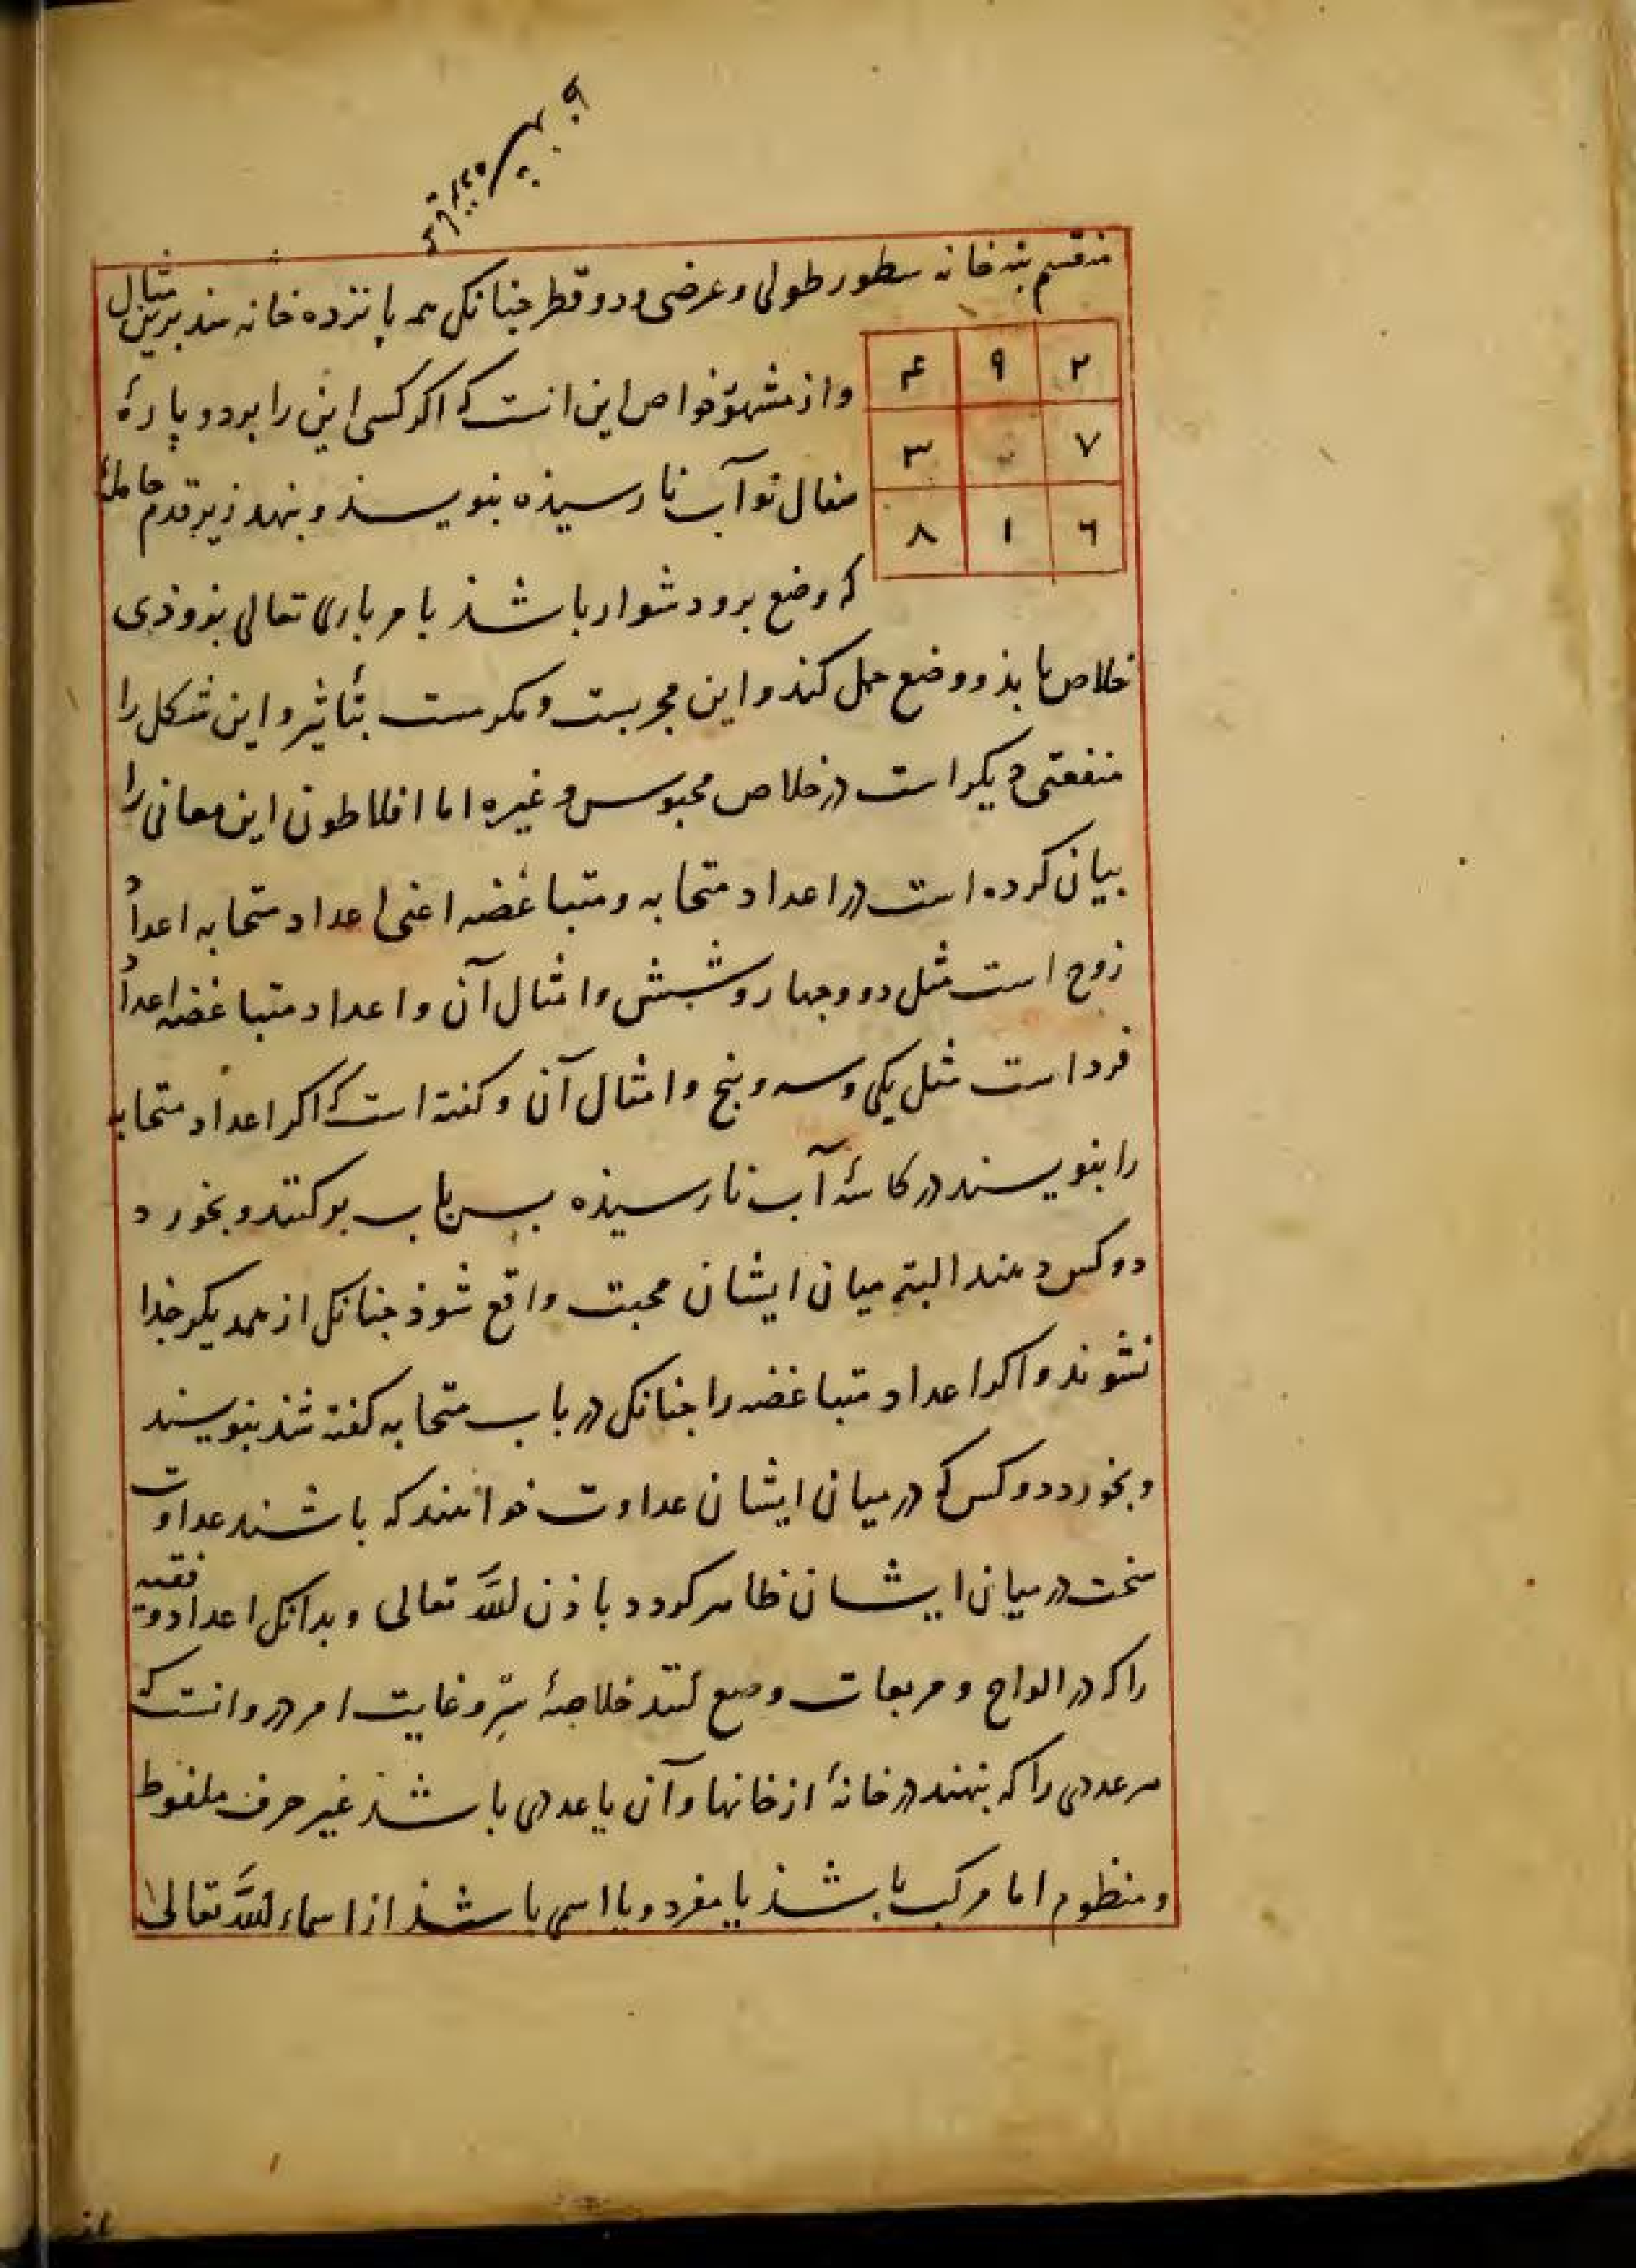 منقسم بنه خانه سطور طولی و عرضی و دو قطر جنانکه همه بانزده خانه مند برین مثال
۲ ۹ ۴
۷ ۳
٦ ۱ ۸
واز مشهور خواص این انست که اکر کسی این را بر دو پارهٔ
سفال نو آب نارسیذه بنویسند و بنهد زیر قدم حاملهٔ
که وضع برو دشوار باشذ بامر باری تعالی بزوذی
خلاص یابذ و وضع حمل کند و این مجربست و مکرمست بتأثیر و این شکل را
منفعتی دیکر است در خلاص محبوس و غیره اما افلاطون این معانی را
بیان کرده است در اعداد متحابه و متباغضه اعنی اعداد متحابه اعداد
زوج است مثل دو و جهار و شش و امثال آن و اعداد متباغضه اعداد
فرد است مثل یکی و سه و بنج و امثال آن و کفته است که اکر اعداد متحابه
را بنویسند در کاسهٔ آب نارسیذه بس باب بر کنند و بخورد
دو کس دهند البته میان ایشان محبت واقع شوذ جنانکه از همدیکر جذا
نشوند و اکر اعداد متباغضه را جنانکه در باب متحابه کفته شذ بنویسند
و بخورد دو کس که در میان ایشان عداوت خواهند که باشند عداوت
سخت در میان ایشان ظاهر کردد باذن الله تعالی و بدانکه اعداد وفقیه
را که در الواح و مربعات وضع کنند خلاصهٔ سِرّ و غایت امر درو انست که
هر عددی را که بنهند در خانهٔ از خانها و آن یا عددی باشذ غیر حرف ملفوظ
و منظوم اما مرکب باشذ یا مفرد و یا اسمی باشذ از اسماء الله تعالی